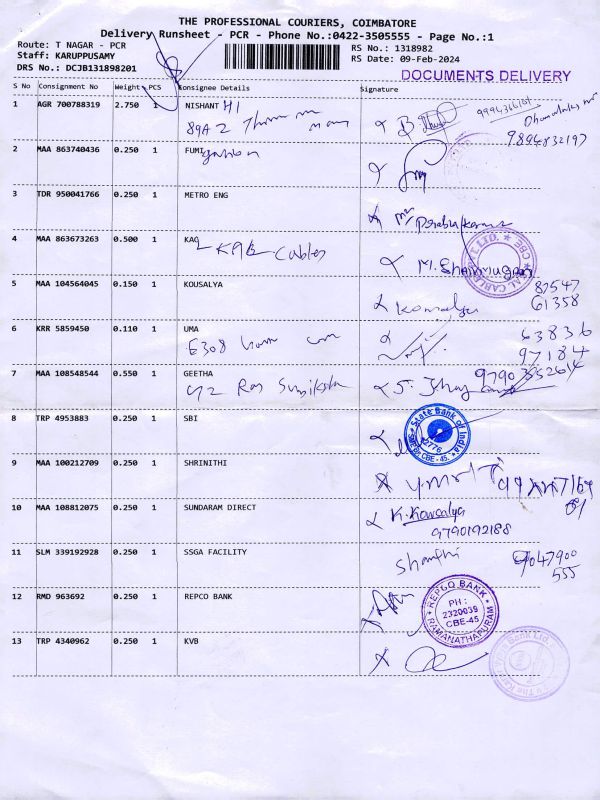 THE PROFESSIONAL COURIERS, COIMBATORE
Delivery Runsheet - PCR - Phone No.:0422-3505555 - Page No.:1
Route: T NAGAR - PCR
Staff: KARUPPUSAMY
DRS No.: DCJB131898201
RS No.: 1318982
RS Date: 09-Feb-2024
DOCUMENTS DELIVERY
S No Consignment No Weight PCS Consignee Details Signature
1 AGR 700788319 2.750 1 NISHANT HI
89A2
9894832197
2 MAA 863740436 0.250 1 FUMI
3 TDR 950041766 0.250 1 METRO ENG
Mr Prabu Kumar
4 MAA 863673263 0.500 1 KAG
KAB Cables
M. Shanmugan
5 MAA 104564045 0.150 1 KOUSALYA
Kowsalya
87547
61358
6 KRR 5859450 0.110 1 UMA
E308
63836
97184
7 MAA 108548544 0.550 1 GEETHA
8 TRP 4953883 0.250 1 SBI
State Bank of India
2776
CBE-45
9 MAA 100212709 0.250 1 SHRINITHI
10 MAA 108812075 0.250 1 SUNDARAM DIRECT
K. Kowcalya
9790192188
11 SLM 339192928 0.250 1 SSGA FACILITY
Shanthi
9047900
555
12 RMD 963692 0.250 1 REPCO BANK
REPCO BANK
PH :
2320039
CBE-45
RAMANATHAPURAM
13 TRP 4340962 0.250 1 KVB